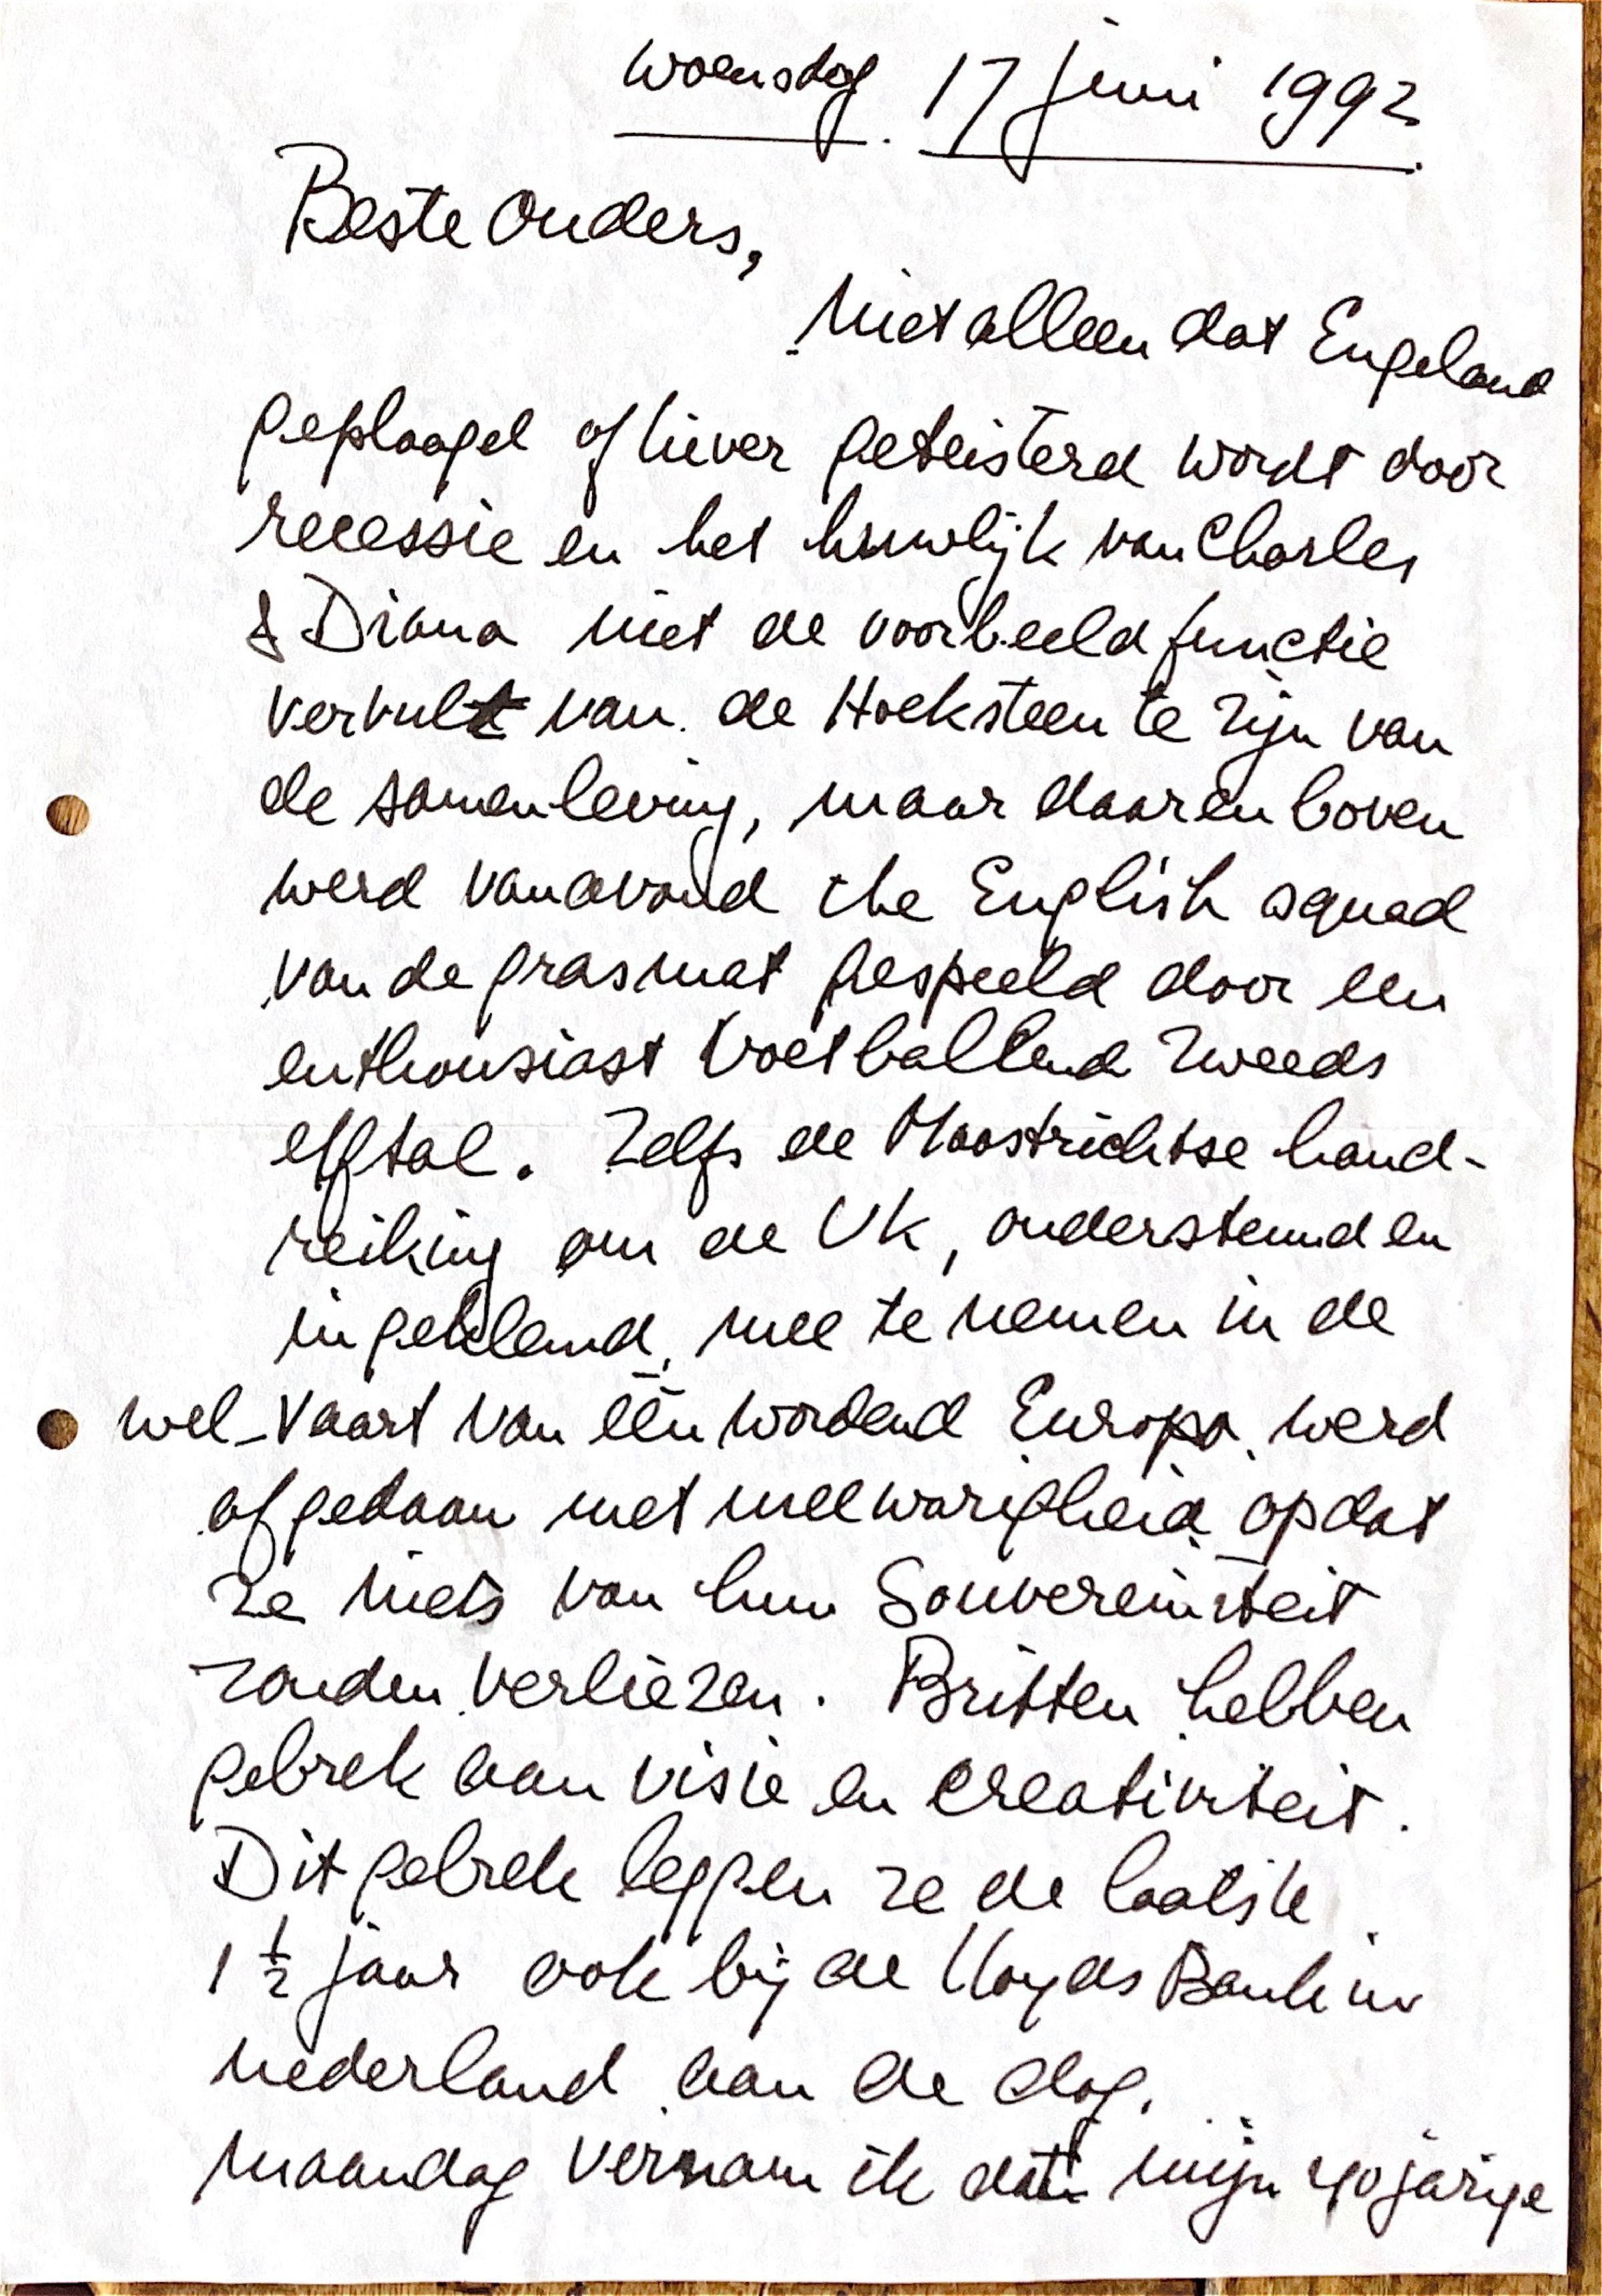 woensdag. 17 juni 1992.
Beste Ouders,
Niet alleen dat Engeland
geplaagd of liever geteisterd wordt door
recessie en het huwlijk van Charles
& Diana niet de voorbeeldfunctie
vervult van de Hoeksteen te zijn van
de samenleving, maar daarenboven
werd vanavond the English squad
van de grasmat gespeeld door een
enthousiast voetballend zweeds
elftal. Zelfs de Maastrichtse hand-
reiking om de UK, ondersteund en
ingebed, mee te nemen in de
wel-vaart van éénwordend Europa werd
afgedaan met meewarigheid opdat
ze niets van hun Souvereiniteit
zouden verliezen. Britten hebben
gebrek aan visie en creativiteit.
Dit gebrek leggen ze de laatste
1 ½ jaar ook bij de Lloyds Bank in
nederland aan de dag.
maandag vernam ik dat mijn 40 jarige